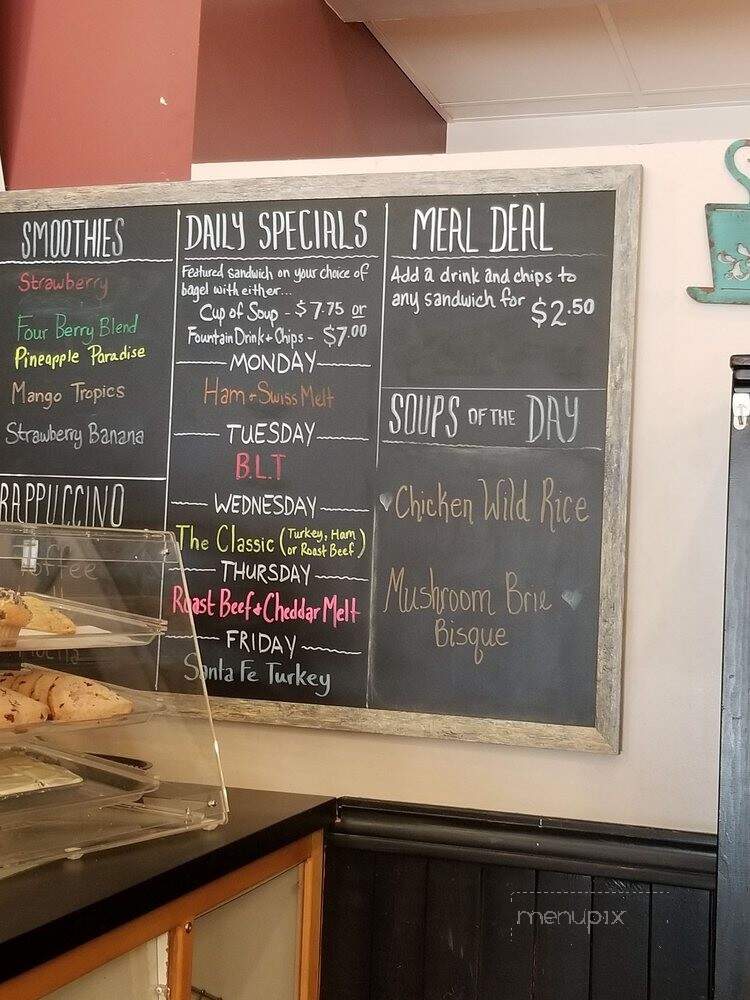 SMOOTHIES
Strawberry
Four Berry Blend
Pineapple Paradise
Mango Tropics
Strawberry Banana
RAPPUCCINO
Toffee
DAILY SPECIALS
Featured sandwich on your choice of
bagel with either...
Cup of Soup - $7.75 or
Fountain Drink + Chips - $7.00
MONDAY
Ham + Swiss Melt
TUESDAY
B.L.T
WEDNESDAY
The Classic (Turkey, Ham
or Roast Beef)
THURSDAY
Roast Beef + Cheddar Melt
FRIDAY
Santa Fe Turkey
MEAL DEAL
Add a drink and chips to
any sandwich for $2.50
SOUPS OF THE DAY
Chicken Wild Rice
Mushroom Brie
Bisque
menupix